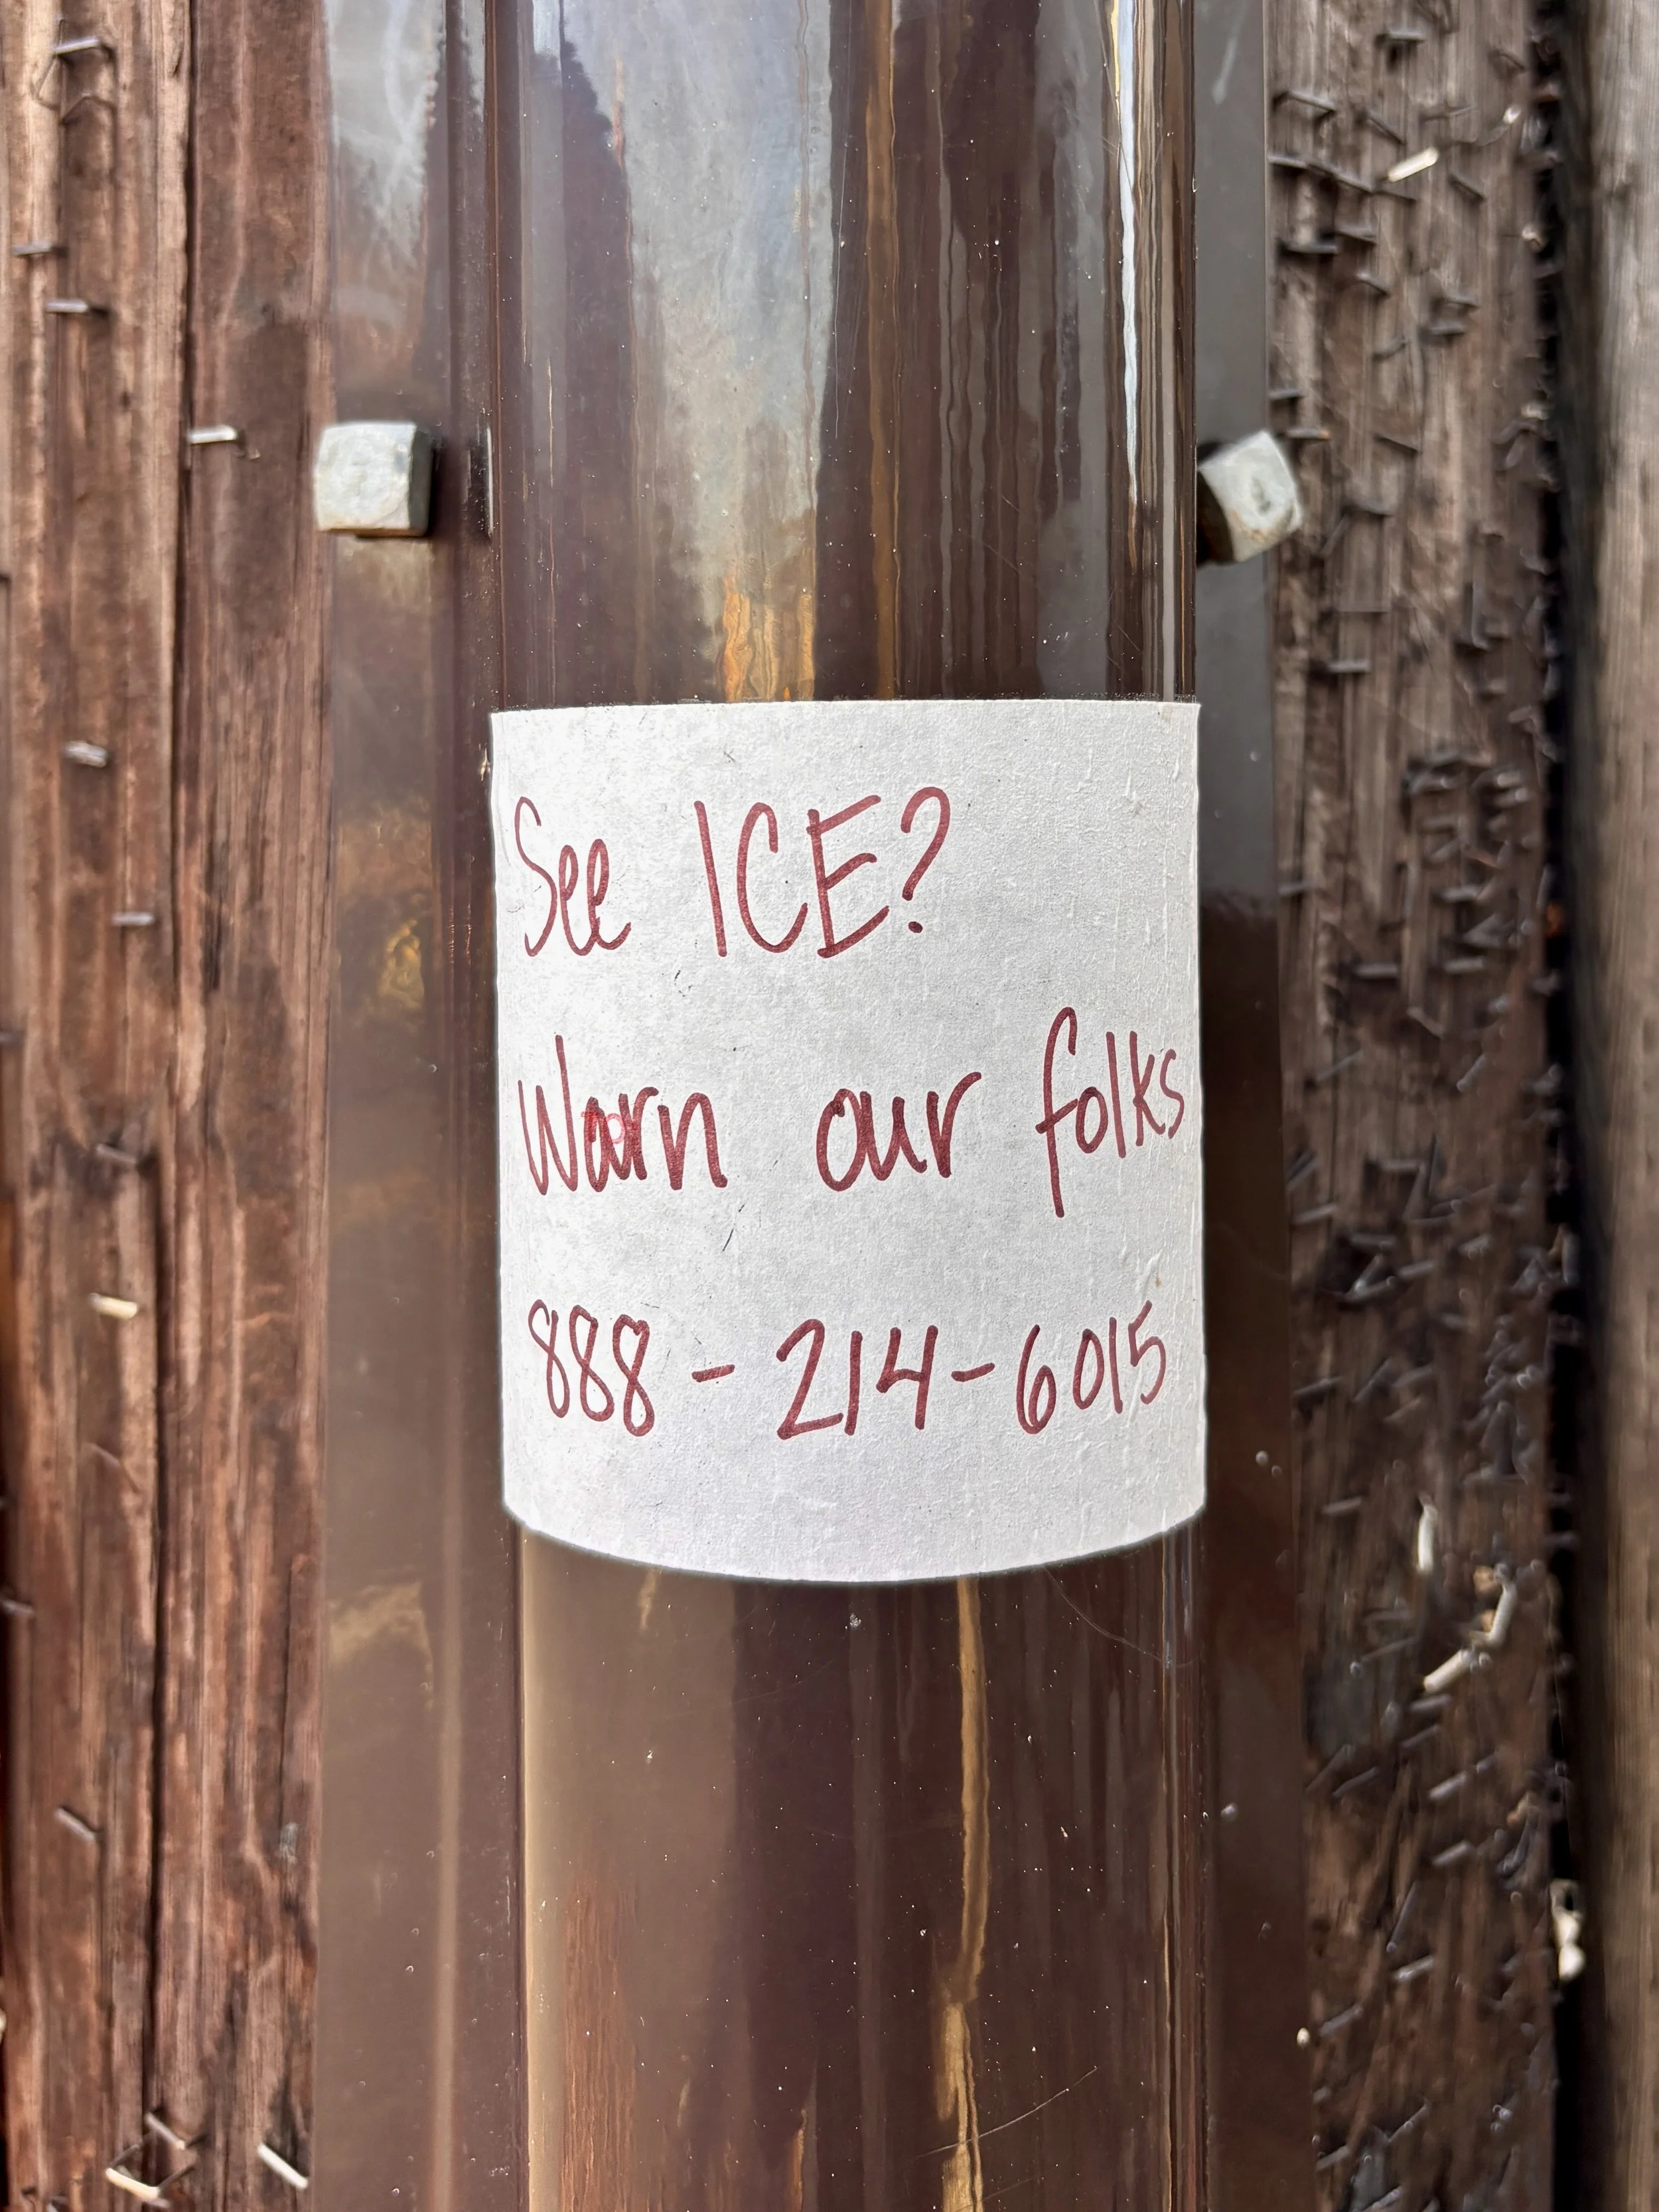 See ICE?
Warn our folks
888-214-6015